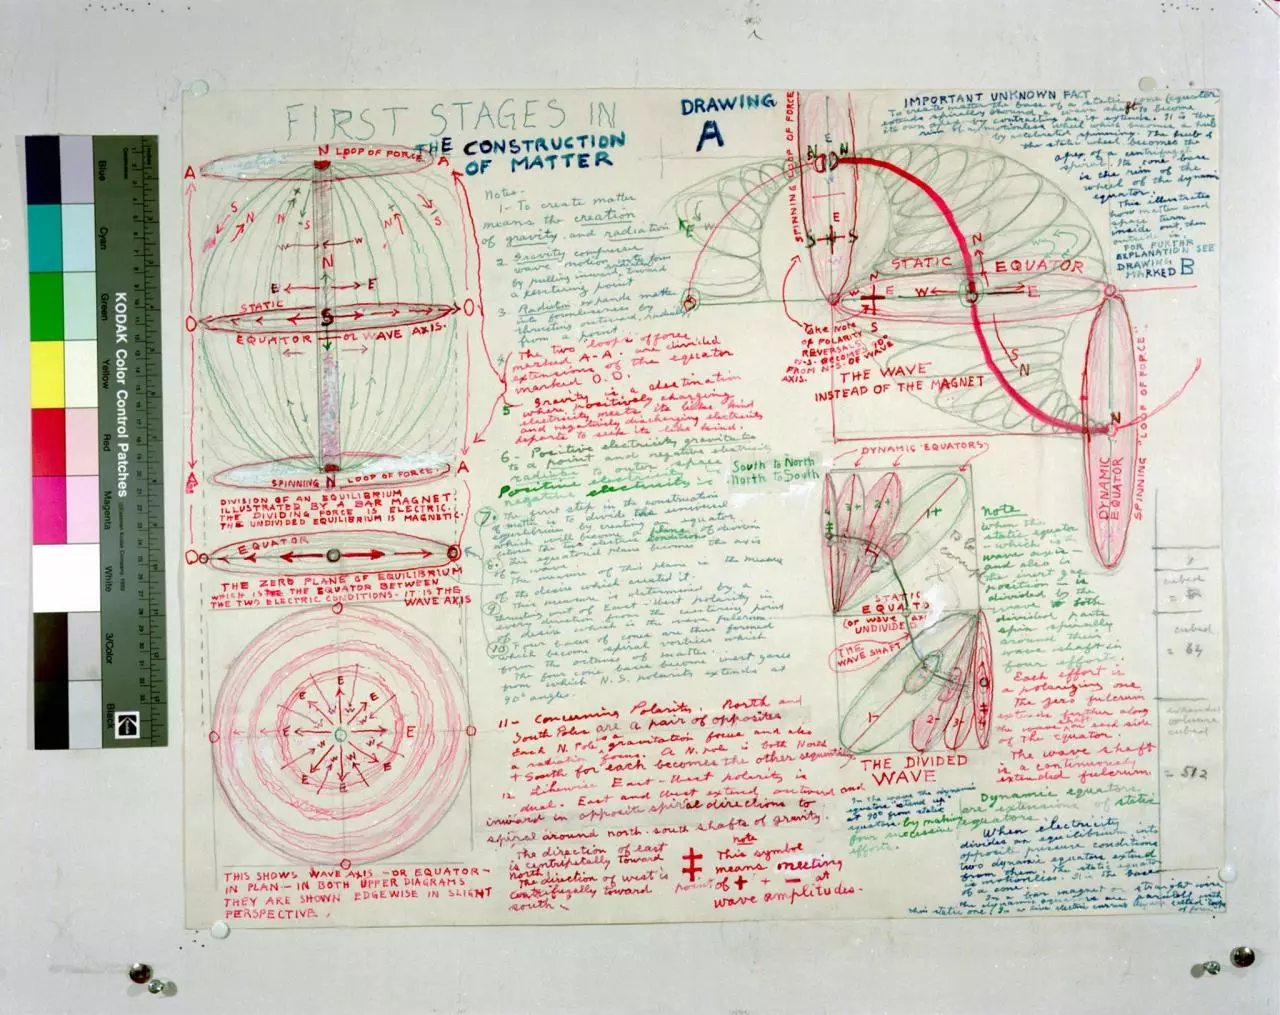 FIRST STAGES IN
THE CONSTRUCTION
OF MATTER
DRAWING
A
N LOOP OF FORCE
A
A
S
N
N
S
W
N
E
E
STATIC
O
O
S
EQUATOR — OR WAVE AXIS.
A
A
SPINNING N LOOP OF FORCE.
DIVISION OF AN EQUILIBRIUM
ILLUSTRATED BY A BAR MAGNET.
THE DIVIDING FORCE IS ELECTRIC.
THE UNDIVIDED EQUILIBRIUM IS MAGNETIC.
EQUATOR
O
THE ZERO PLANE OF EQUILIBRIUM
WHICH IS THE EQUATOR BETWEEN
THE TWO ELECTRIC CONDITIONS - IT IS THE
WAVE AXIS
E
E
E
E
E
THIS SHOWS WAVE AXIS - OR EQUATOR -
IN PLAN - IN BOTH UPPER DIAGRAMS
THEY ARE SHOWN EDGEWISE IN SLIGHT
PERSPECTIVE.
Notes-
1- To create matter
means the creation
of gravity and radiation
2. Gravity compresses
wave motion into form
by pulling inward toward
a centering point
3. Radiation expands matter
into formlessness by
thrusting outward, radially
from a point
4. The two loops of force
marked A-A. are divided
extensions of the equator
marked O.O.
5- Gravity is a destination
where positively charging
electricity meets its like kind
and negatively discharging electricity
departs to seek its like kind.
6- Positive electricity gravitates
to a point and negative electricity
radiates to outer space
Positive electricity is South to North
negative electricity is North to South
7. The first step in the construction
of matter is to divide the universal
equilibrium by creating an equator
which will become a plane of division
between the two electric conditions
this equatorial plane becomes the axis
of a wave.
8. The measure of this plane is the measure
of the desire which created it.
9. This measure is determined by a
thrust of East-West polarity in
every direction from a centering point
of desire which is the wave fulcrum.
10. Four bases of cones are thus formed
which become spiral vortices which
form the octaves of matter.
The four cone bases become inert gases
from which N.S. polarity extends at
90° angles.
11- Concerning Polarity. North and
South Poles are a pair of opposites
Each N. Pole is gravitation focus and also
a radiation focus. A N. pole is both North
+ South for each becomes the other sequentially
12 Likewise East-West polarity is
dual. East and West extend outward and
inward in opposite spiral directions to
spiral around north-south shafts of gravity.
The direction of east
is centripetally toward
north.
The direction of west is
centrifugally toward
south.
note
This symbol
means meeting
point of + + − at
wave amplitudes.
SPINNING LOOP OF FORCE
E
N
S
S
N
W
STATIC EQUATOR
N
W
E
S
N
S
Take Note
of POLARITY
REVERSALS.
N-S. BECOMES 90°
FROM N-S OF WAVE
AXIS.
THE WAVE
INSTEAD OF THE MAGNET
N
DYNAMIC
EQUATOR
SPINNING LOOP OF FORCE.
IMPORTANT UNKNOWN FACT
To create matter the base of a static cone (equator)
extends spirally around a shaft to become
its own apex by contracting as it extends. It is thus
rim of a motionless wheel which becomes a hub
by centered spinning. The hub of
the static wheel becomes the
apex of a centrifugal
spiral. Its cone base
is the rim of the
wheel of the dynamic
equator.
This illustrates
how matter and
space turn
inside out, then
outside in.
FOR FURTHER
EXPLANATION SEE
DRAWING
MARKED B
DYNAMIC EQUATORS
4+
3+
2+
1+
STATIC
EQUATOR
(OR WAVE AXIS)
UNDIVIDED
THE
WAVE SHAFT
1-
2-
3-
THE DIVIDED
WAVE
In the wave the dynamic
equators "stand up"
at 90° from static
equators by making
four successive
efforts.
note
When this
static equator
- which is the
wave axis -
and also is
the inert gas
position - is
divided by the
wave - both
divided parts
spin spirally
around their
wave shaft in
four efforts.
Each effort is
a polarizing one
The zero fulcrum
extends farther along
the wave shaft each side
of the equator.
The wave shaft
is a continuously
extended fulcrum
Dynamic equators
are extensions of static
equators.
When electricity
divides an equilibrium into
opposite pressure conditions
two dynamic equators extend
from them. The static equator
is motionless. It is the base
of a cone.
In a bar magnet or straight wire
the dynamic equators are parallel
8
cubed
cubed
= 64
cubed
= 512
KODAK Color Control Patches
Blue
Cyan
Green
Yellow
Red
Magenta
White
3/Color
Black
Kodak